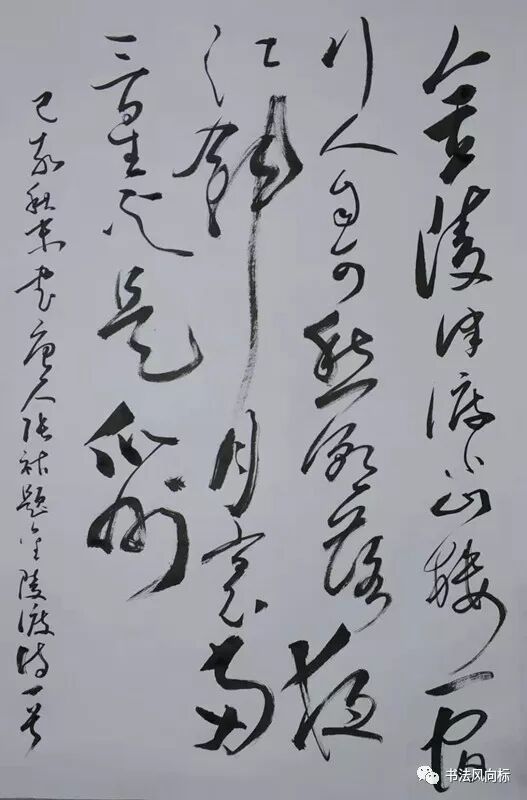 金陵津渡小山樓一宿
行人自可愁潮落夜
江斜月裏兩
三星火是瓜州
己亥秋末書唐人張祜題金陵渡詩一首
书法风向标